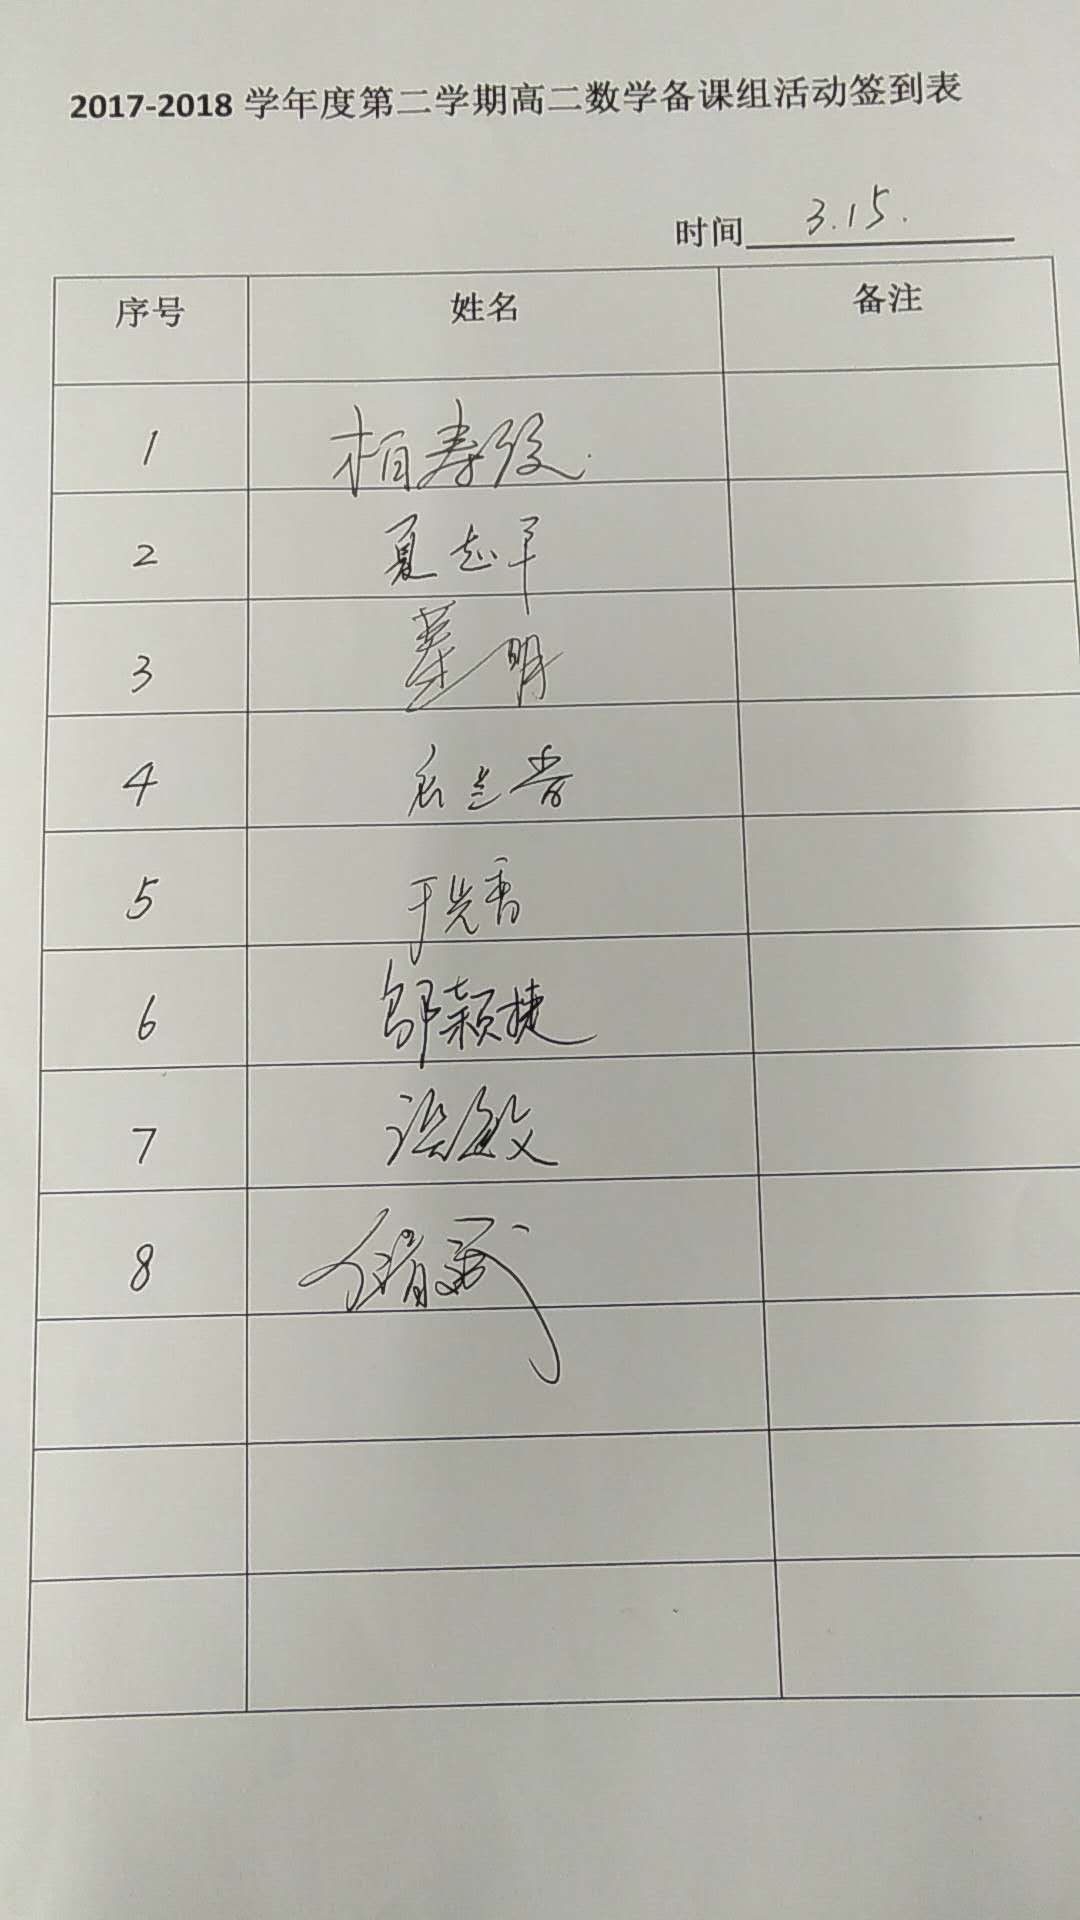 2017-2018 学年度第二学期高二数学备课组活动签到表
时间 3.15.
序号 姓名 备注
1 柏寿
2 夏起军
3 明
4
5 于光香
6 邹颖捷
7 梁敏
8 储斌